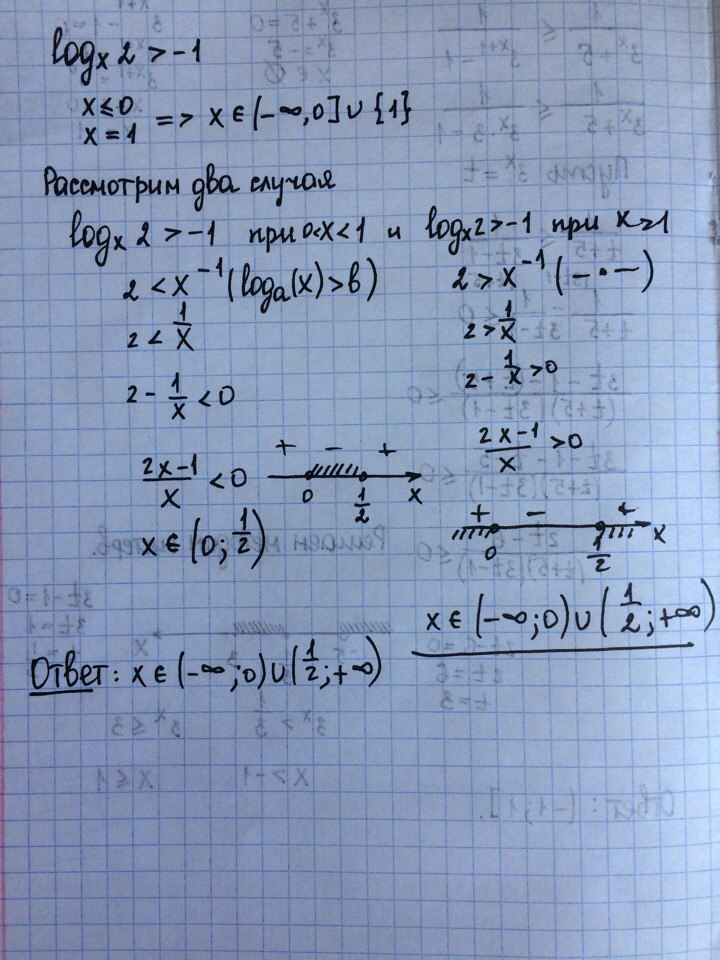 logₓ 2 > -1
x ≤ 0
x = 1 => x ∈ (-∞, 0] ∪ {1}
Рассмотрим два случая
logₓ 2 > -1 при 0<x<1 и logₓ2 > -1 при x>1
2 < x⁻¹ (logₐ(x) > b)
2 < 1/x
2 - 1/x < 0
(2x-1)/x < 0
+ - +
0 1/2 x
x ∈ (0; 1/2)
2 > x⁻¹ (- • -)
2 > 1/x
2 - 1/x > 0
(2x-1)/x > 0
+ - +
0 1/2 x
x ∈ (-∞; 0) ∪ (1/2; +∞)
Ответ: x ∈ (-∞; 0) ∪ (1/2; +∞)